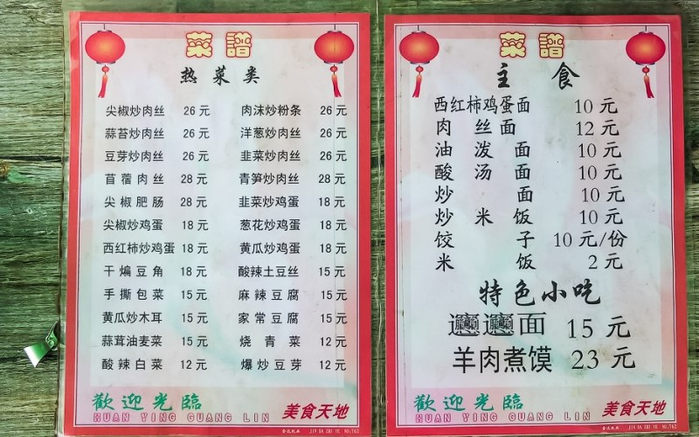 菜譜
热菜类
尖椒炒肉丝 26元 肉沫炒粉条 26元
蒜苔炒肉丝 26元 洋葱炒肉丝 26元
豆芽炒肉丝 26元 韭菜炒肉丝 26元
苜蓿肉丝 28元 青笋炒肉丝 28元
尖椒肥肠 28元 韭菜炒鸡蛋 18元
尖椒炒鸡蛋 18元 葱花炒鸡蛋 18元
西红柿炒鸡蛋 18元 黄瓜炒鸡蛋 18元
干煸豆角 18元 酸辣土豆丝 15元
手撕包菜 15元 麻辣豆腐 15元
黄瓜炒木耳 15元 家常豆腐 15元
蒜茸油麦菜 15元 烧青菜 12元
酸辣白菜 12元 爆炒豆芽 12元
歡迎光臨
HUAN YING GUANG LIN
美食天地
菜譜
主食
西红柿鸡蛋面 10元
肉丝面 12元
油泼面 10元
酸汤面 10元
炒面 10元
炒米饭 10元
饺子 10元/份
米饭 2元
特色小吃
𰻞𰻞面 15元
羊肉煮馍 23元
歡迎光臨
HUAN YING GUANG LIN
美食天地